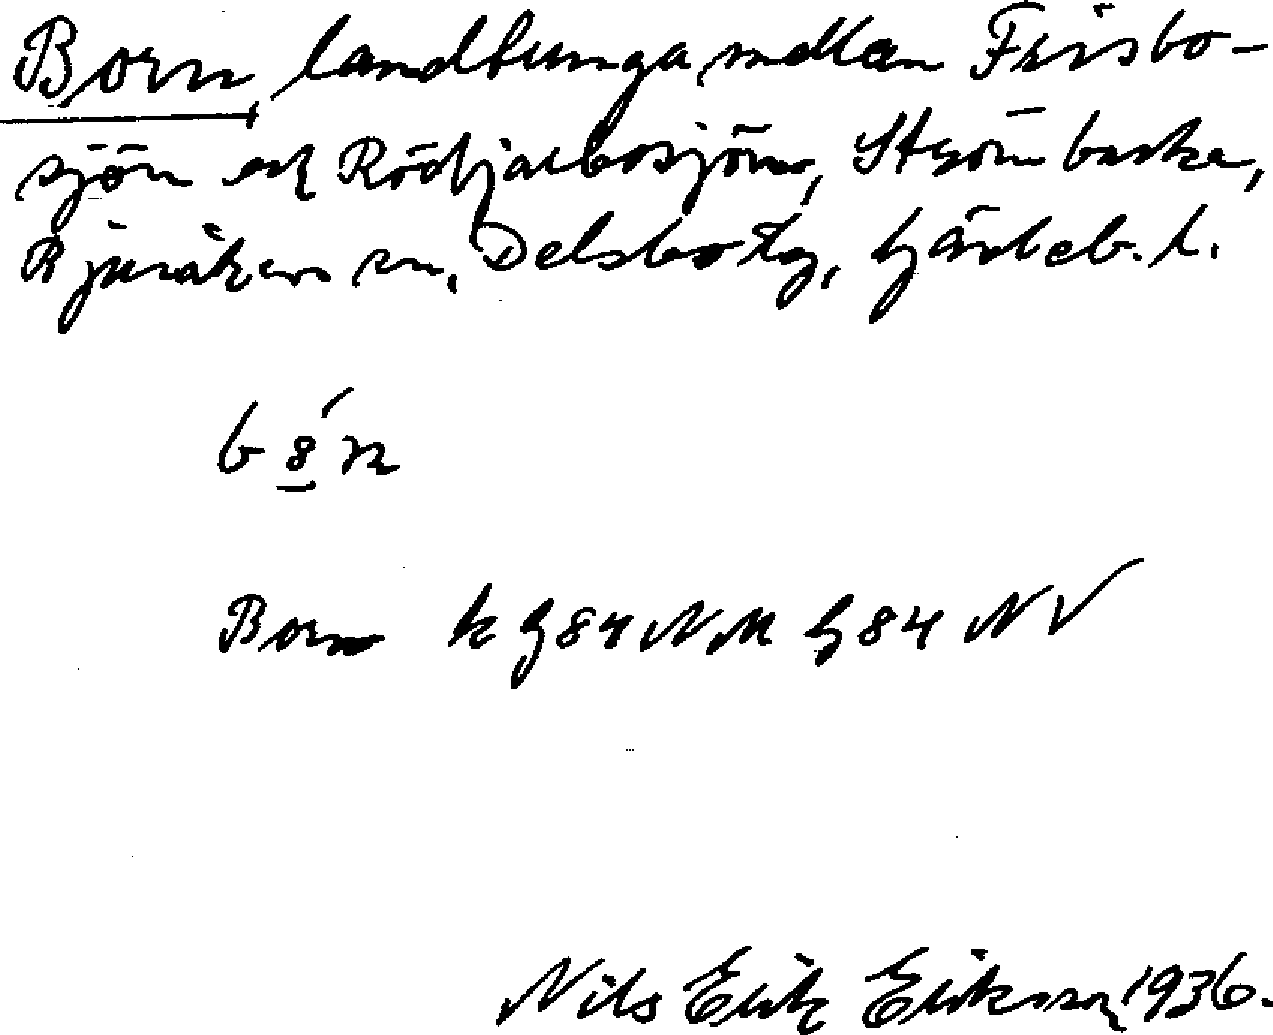 Born, landtunga mellan Frisbo-
sjön och Rödtjärbosjön, Strömbacka,
Bjuråkers sn, Delsbo tg, Gävleb. l.
b 8́ n
Born k G84NM G84 NV
Nils Erik Eriksson, 1936.